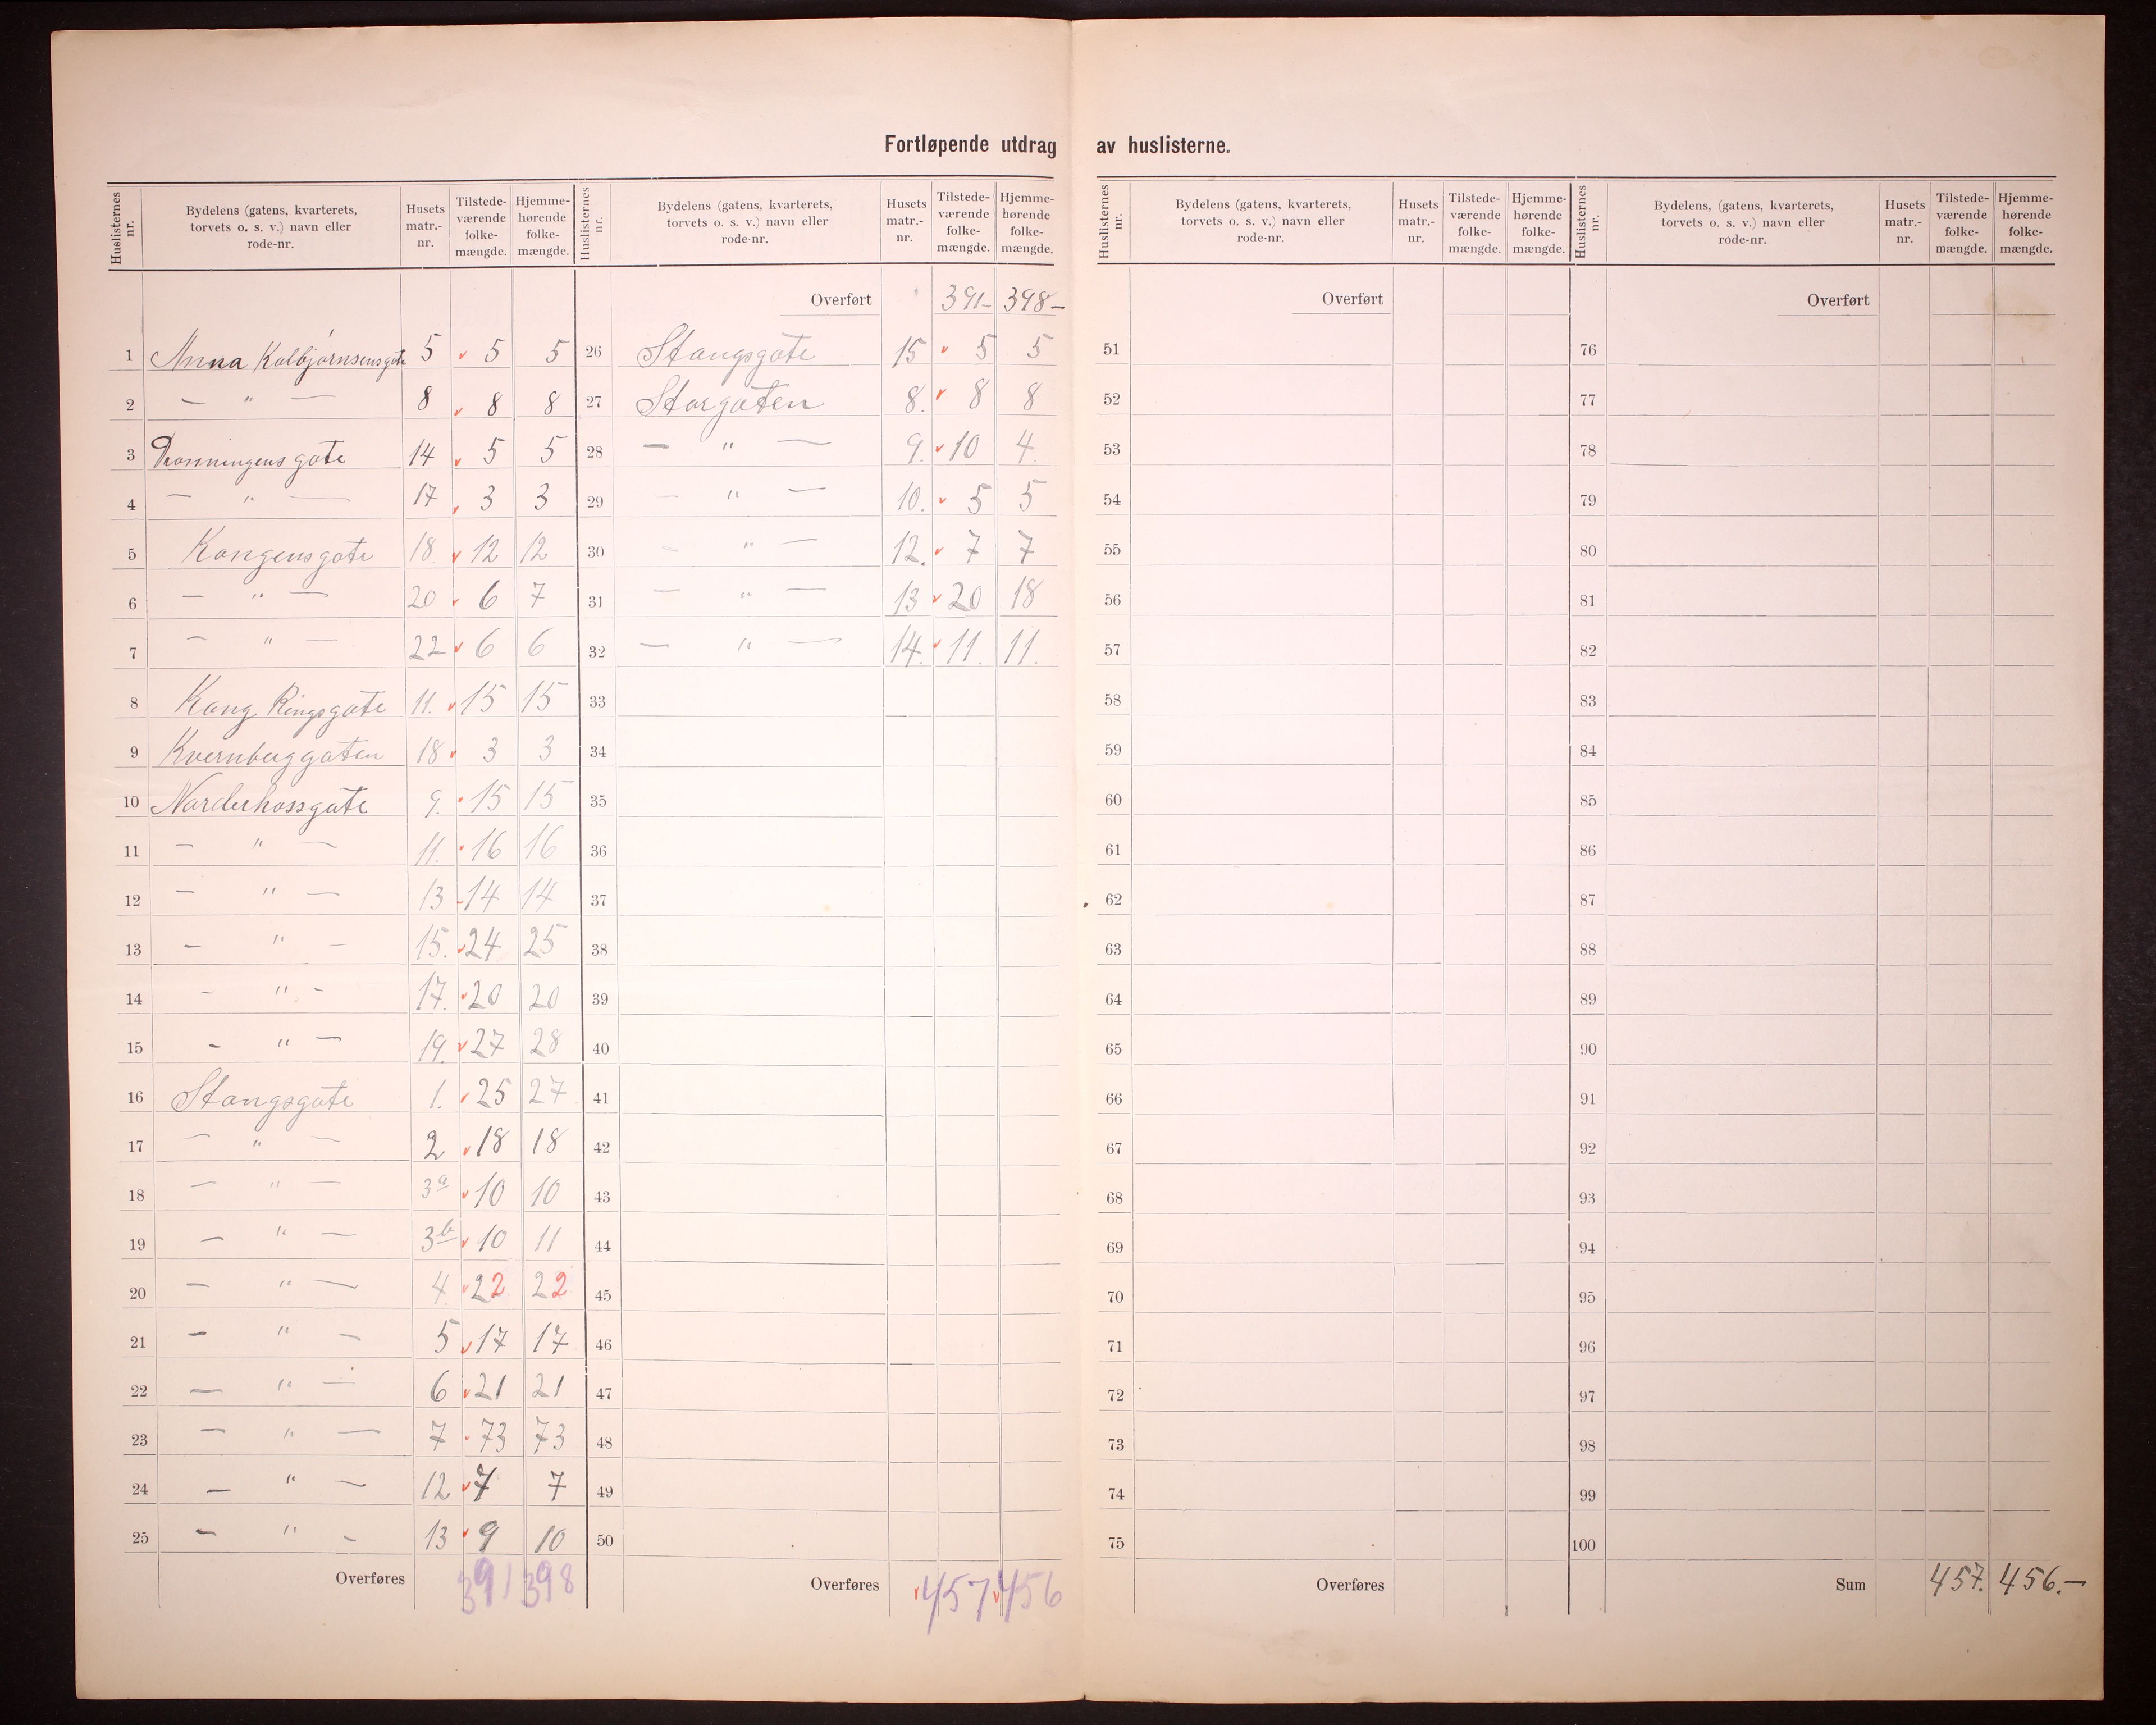 Fortløpende utdrag av huslisterne.
Huslisternes nr. | Bydelens (gatens, kvarterets, torvets o. s. v.) navn eller rode-nr. | Husets matr.-nr. | Tilstedeværende folkemængde. | Hjemmehørende folkemængde.
1 Anna Kolbjørnsensgate 5 5 5
2 — " — 8 8 8
3 Dronningens gate 14 5 5
4 — " — 17 3 3
5 Kongensgate 18 12 12
6 — " — 20 6 7
7 — " — 22 6 6
8 Kong Ringsgate 11. 15 15
9 Kvernberggaten 18 3 3
10 Norderhovsgate 9. 15 15
11 — " — 11. 16 16
12 — " — 13 14 14
13 — " — 15. 24 25
14 — " — 17. 20 20
15 — " — 19. 27 28
16 Stangsgate 1. 25 27
17 — " — 2 18 18
18 — " — 3a 10 10
19 — " — 3b 10 11
20 — " — 4. 22 22
21 — " — 5 17 17
22 — " — 6 21 21
23 — " — 7 73 73
24 — " — 12 7 7
25 — " — 13 9 10
Overføres 391 398
Huslisternes nr. | Bydelens (gatens, kvarterets, torvets o. s. v.) navn eller rode-nr. | Husets matr.-nr. | Tilstedeværende folkemængde. | Hjemmehørende folkemængde.
Overført 391- 398-
26 Stangsgate 15 5 5
27 Storgaten 8. 8 8
28 — " — 9. 10 4.
29 — " — 10. 5 5
30 — " — 12. 7 7
31 — " — 13 20 18
32 — " — 14. 11. 11.
33
34
35
36
37
38
39
40
41
42
43
44
45
46
47
48
49
50
Overføres 457 456
Huslisternes nr. | Bydelens (gatens, kvarterets, torvets o. s. v.) navn eller rode-nr. | Husets matr.-nr. | Tilstedeværende folkemængde. | Hjemmehørende folkemængde.
Overført
51
52
53
54
55
56
57
58
59
60
61
62
63
64
65
66
67
68
69
70
71
72
73
74
75
Overføres
Huslisternes nr. | Bydelens, (gatens, kvarterets, torvets o. s. v.) navn eller rode-nr. | Husets matr.-nr. | Tilstedeværende folkemængde. | Hjemmehørende folkemængde.
Overført
76
77
78
79
80
81
82
83
84
85
86
87
88
89
90
91
92
93
94
95
96
97
98
99
100
Sum 457. 456.-